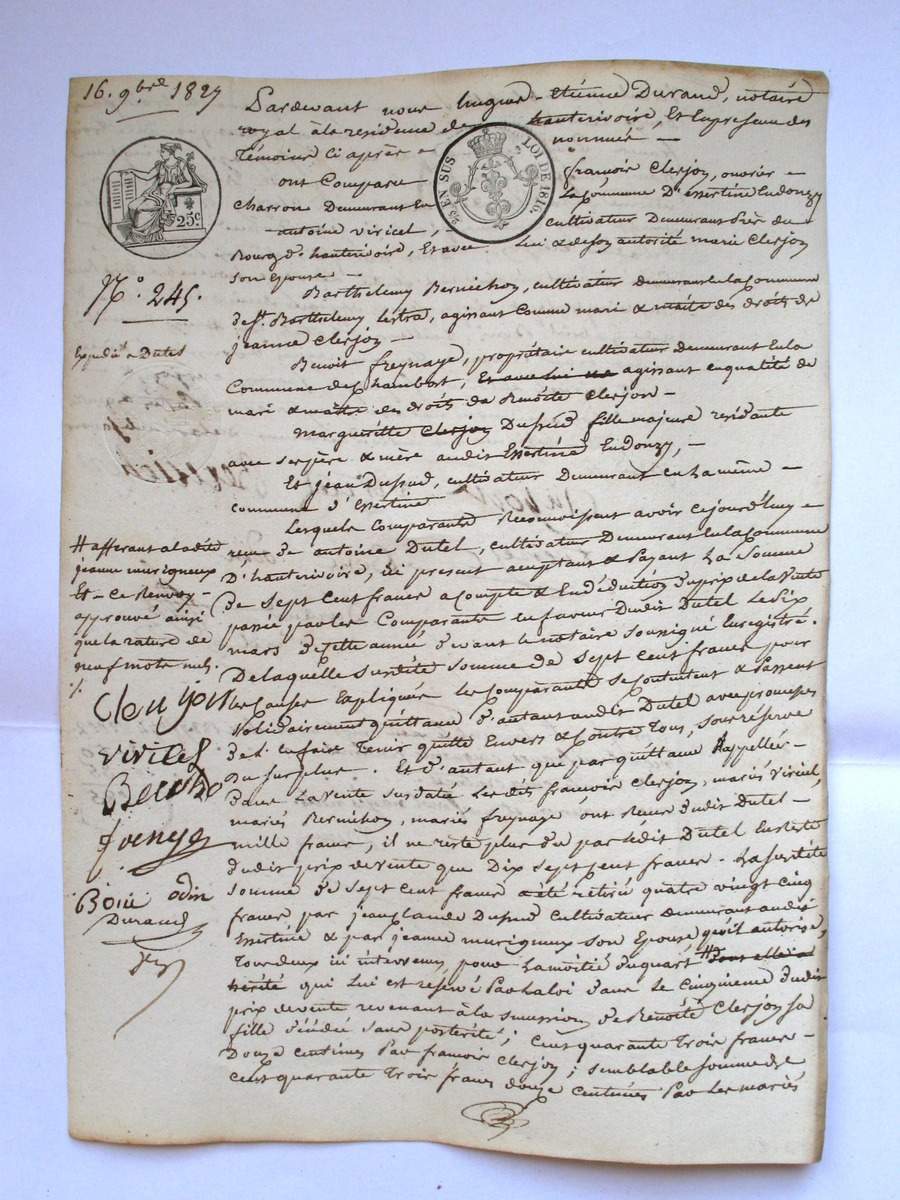 16. 9bre 1827
Pardevant nous hugue-Etienne Durand, notaire
royal à la residence de hauterivoire, Et En presence des
témoins ci après nommés —
25 c.
25 EN SUS LOI DE 1816.
ont Comparu françois Clerjon, ouvrier
Charron Demeurant en la Commune D'Essertine Endonzy
antoine viricel, cultivateur Demeurant Près du
Bourg d'hauterivoire, Et avec Lui & de son autorité marie Clerjon
son Epouse —
N.° 245.
Barthelemy Bernichon, cultivateur demeurant en la Commune
de St. Barthelemy Lestra, agissant Comme mari & maître des droits de
jeanne Clerjon —
Expédié a Dutel
Benoit freynage, propriétaire cultivateur demeurant en la
Commune de Chambost, Et avec lui agissant en qualité de
mari & maître des droits de Benoîte Clerjon —
margueritte Clerjon Dupuid fille majeure residante
avec ses père & mère audit Essertine Endonzy, —
Et jean Dupuid, cultivateur Demeurant en La même —
commune d'Essertine
Lesquels Comparants Reconnoissent avoir Cejourd'huy
reçu de antoine Dutel, cultivateur Demeurant en la Commune
D'hauterivoire, ici present acceptant & Payant La Somme
De sept Cent francs acompte & En déduction du prix de la vente
passée par les Comparants en faveur Dudit Dutel Le Six
mars de cette année devant le notaire soussigné Enregistré.
De laquelle susdite somme de sept cent francs pour
les causes Expliquées les Comparants se Contentent & Passent
Solidairement quittance d'autant audit Dutel avec promesses
de l'en faire Tenir quitte Envers & Contre Tous, sous réserve
Du surplus. Et d'autant que par quittance Rappellée
dans La vente susdatée Les dits françois Clerjon, mariés viricel,
mariés Bernichon, mariés freynage ont Reçus dudit Dutel —
mille francs, il ne reste plus du par Ledit Dutel En reste
dudit prix de vente que Dix sept cent francs. La susdite
somme de sept cent francs a été retiré quatre vingt cinq
francs par jean claude Dupuid cultivateur demeurant audit
Essertine & par jeanne murigneux son Epouse qu'il autorise,
Tous deux ici intervenus pour La moitié du quart #
hérité qui Lui est réservé Par la loi dans le cinquieme dudit
prix de vente revenant à la succession de Benoîte Clerjon sa
fille décédée sans postérité ; Cent quarante Trois francs —
Douze centimes Par francois Clerjon ; semblable somme de
Cent quarante Trois francs douze centimes Par Les mariés
# afferant a la dite
jeanne murigneux
Et — Ce Renvoy
approuvé ainsi
que la rature de
neuf mots nuls.
Clerjon
viricel
Boiü odin
Durand